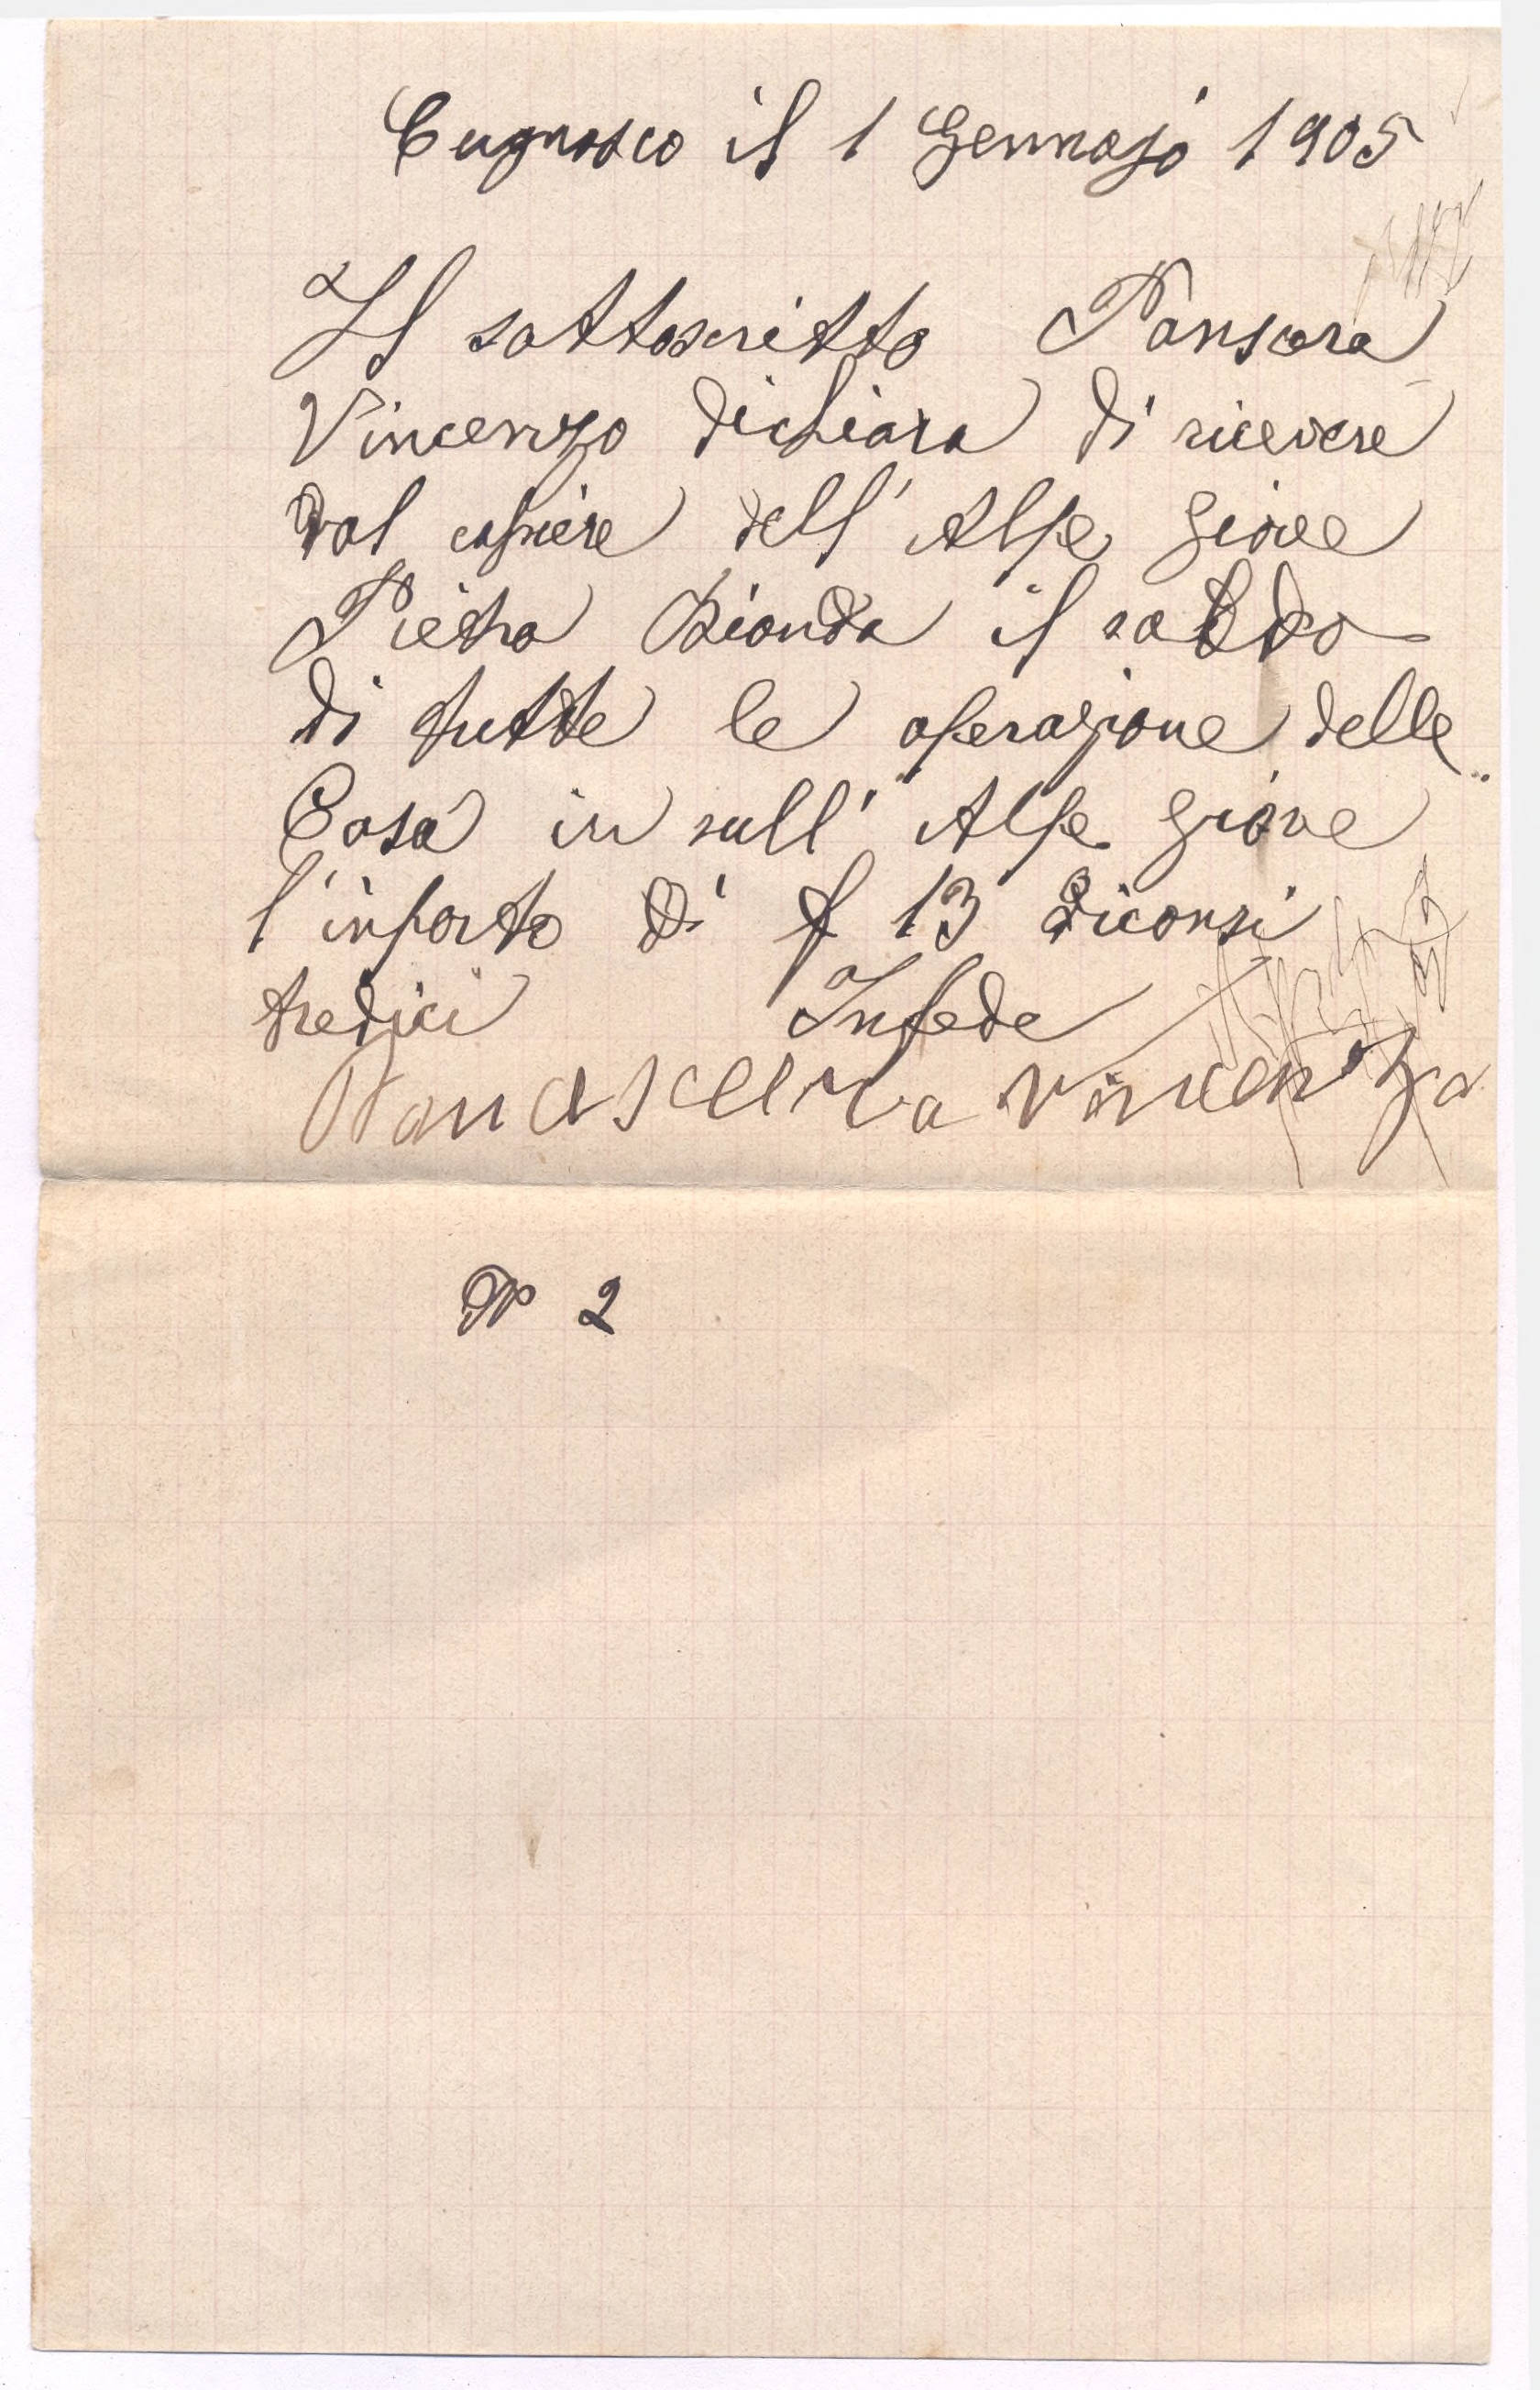 Cugnasco il 1 Gennajo 1905
Il sottoscritto Panscera
Vincenzo dichiara di ricevere
dal casiere dell' Alpe Giove
Pietro Bionda il saldo
di tutte le operazione delle
Casa in sull' Alpe Giove
l'inporto di f 13 diconsi
tredici Infede
Panascera Vincenzo
N° 2